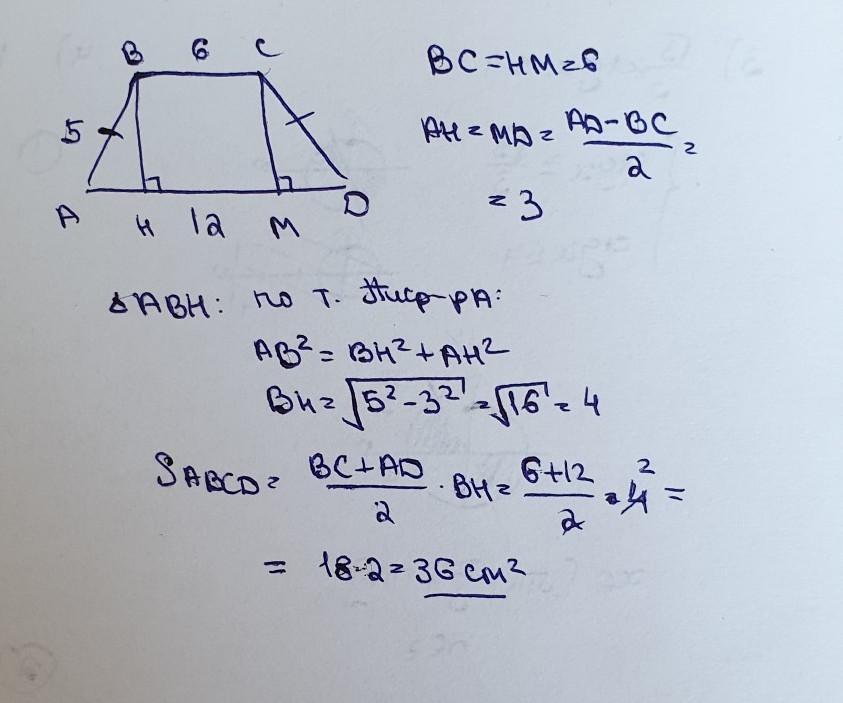 B 6 C
5
A H 12 M D
BC = HM = 6
AH = MD = \frac{AD - BC}{2} =
= 3
△ABH: по т. Пиф-ра:
AB² = BH² + AH²
BH = √(5² - 3²) = √16 = 4
S_{ABCD} = \frac{BC + AD}{2} · BH = \frac{6 + 12}{2} · 4² =
= 18 · 2 = 36 см²